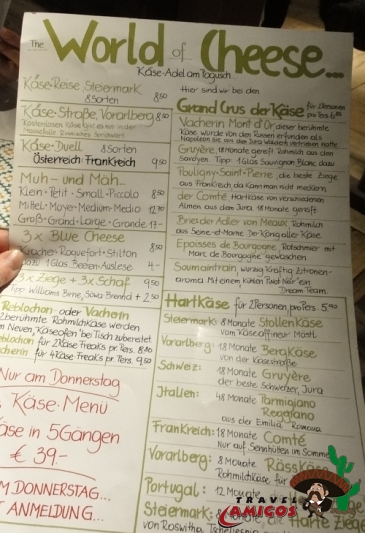 The World of Cheese...
Käse-Adel am Tagisch
Käse-Reise Steiermark
8 Sorten 8,50
Käse-Straße, Vorarlberg 8,50
Käse-Duell 8 Sorten
Österreich : Frankreich 9,50
Muh- und Mäh...
Klein · Petit · Small · Piccolo 8,50
Mittel · Moyen · Medium · Medio
Groß · Grand · Large · Grande 17,-
3 x Blue Cheese
Roquefort - Stilton 8,50
1 Glas Beeren-Auslese 4,-
Ziege + 3 x Schaf 9,50
Tipp: Williams Birne, + 2,50
Reblochon oder Vacherin
berühmte Rohmilchkäse werden
im Neuen "Käseofen" bei Tisch zubereitet
für 2 Käse Freaks pro Pers. 8,50
für 4 Käse Freaks pro Pers. 9,50
Nur am Donnerstag
Käse-Menü
Käse in 5 Gängen
€ 39,-
DONNERSTAG...
ANMELDUNG...
Hier sind wir bei den
Grand Crus der Käse für 2 Personen
pro Pers. 6,80
Vacherin Mont d'Or dieser berühmte
Käse wurde von den Russen erfunden als
Napoleon sie
Gruyère 18 Monate gereift Rohmilch aus den
Savoyen Tipp: 1 Glas Sauvignon Blanc dazu
Pouligny-Saint-Pierre, die beste Ziege
aus Frankreich da kann man nicht meckern
der Comté Hartkäse von verschiedenen
Almen aus dem Jura 18 Monate gereift
Brie des Adlier von Meaux, Rohmilch
aus Seine-et-Marne Der König aller Käse
Epoisses de Bourgogne, Rotschmier mit
Marc de Bourgogne gewaschen
Soumaintrain, würzig kräftig Zitronen-
aroma Mit einem kühlen Pinot Noir ein
Dream Team.
Hartkäse für 2 Personen pro Pers. 5,90
Steiermark: 8 Monate Stollenkäse
vom Käseaffineur
Vorarlberg: 18 Monate Bergkäse
von der Käsestraße
Schweiz: 18 Monate Gruyère
der beste Schweizer, Jura
Italien: 48 Monate Parmigiano
Reggiano
aus der Emilia Romana
Frankreich: 18 Monate Comté
Nur auf Sennhütten im Sommer
Vorarlberg: 8 Monate Rässkäse
Rohmilchkäse, für
Portugal: 12 Monate
Steiermark: 8 Monate, die Harte Ziege
von Roswitha
TRAVEL
AMIGOS